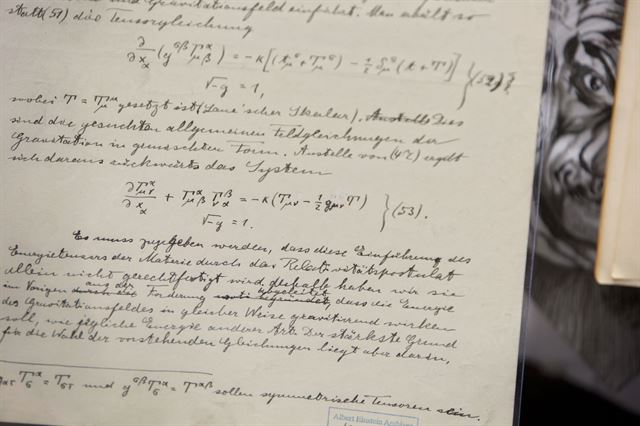 statt (51) die Tensorgleichung
∂/∂x_α (g^{σβ} Γ^α_{μβ}) = -κ[(t^σ_μ + T^σ_μ) - ½ δ^σ_μ (t + T)] } (52)
√-g = 1,
wobei T = T^μ_μ gesetzt ist (Laue'scher Skalar). Dies
sind die gesuchten allgemeinen Feldgleichungen der
Gravitation in gemischter Form. Anstelle von (47) ergibt
sich daraus rückwärts das System
∂Γ^α_{μν}/∂x_α + Γ^α_{μβ} Γ^β_{να} = -κ(T_{μν} - ½ g_{μν} T) } (53).
√-g = 1.
Es muss zugegeben werden, dass diese Einführung des
Energietensors der Materie durch das Relativitätspostulat
allein nicht gerechtfertigt wird; deshalb haben wir sie
im Vorigen aus der Forderung abgeleitet, dass die Energie
des Gravitationsfeldes in gleicher Weise gravitierend wirken
soll, wie jegliche Energie anderer Art. Der stärkste Grund
für die Wahl der vorstehenden Gleichungen liegt aber darin,
T^α_σ = T_{στ} und g^{σβ} T^α_σ = T^{αβ} sollen symmetrische Tensoren sein.
Albert Einstein Archives